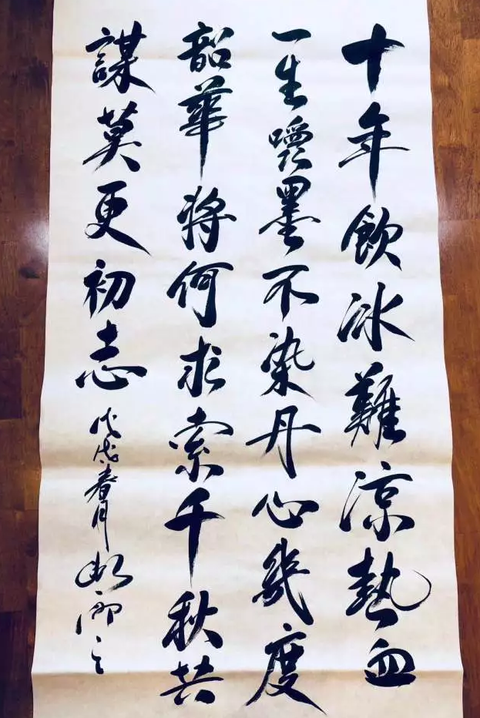 十年飲冰難涼熱血
一生嚼墨不染丹心幾度
韶華將何求索千秋共
謀莫更初志 戊戌春月